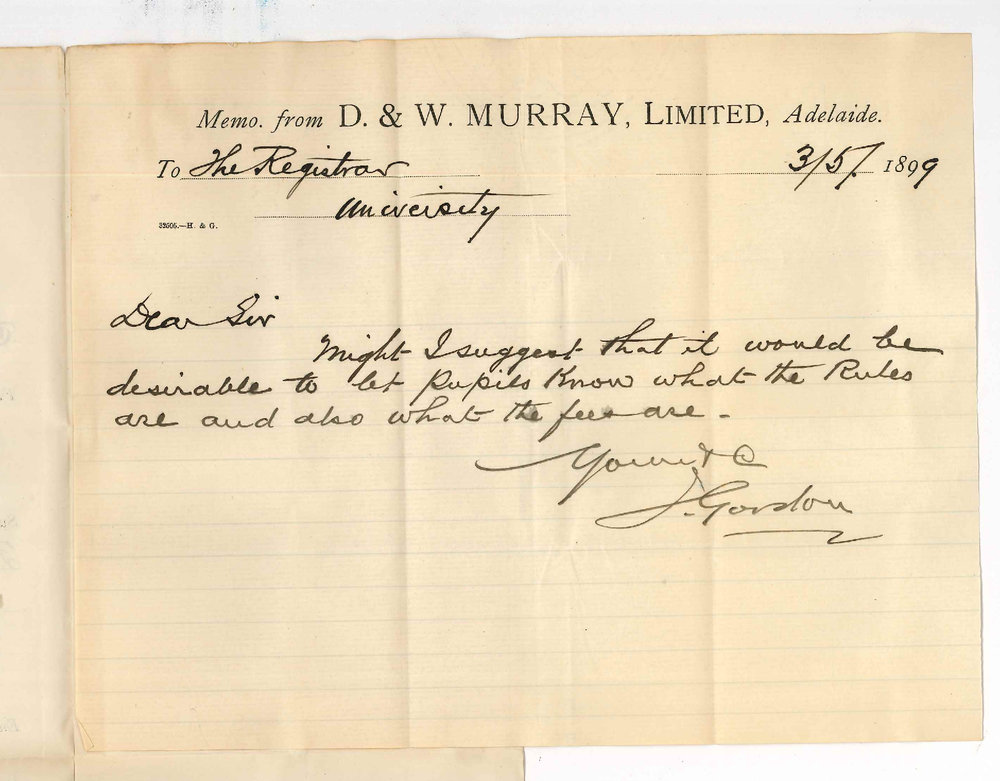 Memo. from D. & W. MURRAY, LIMITED, Adelaide.
To The Registrar 3/5/ 1899
University
32505.—H. & G.
Dear Sir
Might I suggest that it would be
desirable to let pupils know what the Rules
are and also what the fees are -
Yours &c
J. Gordon